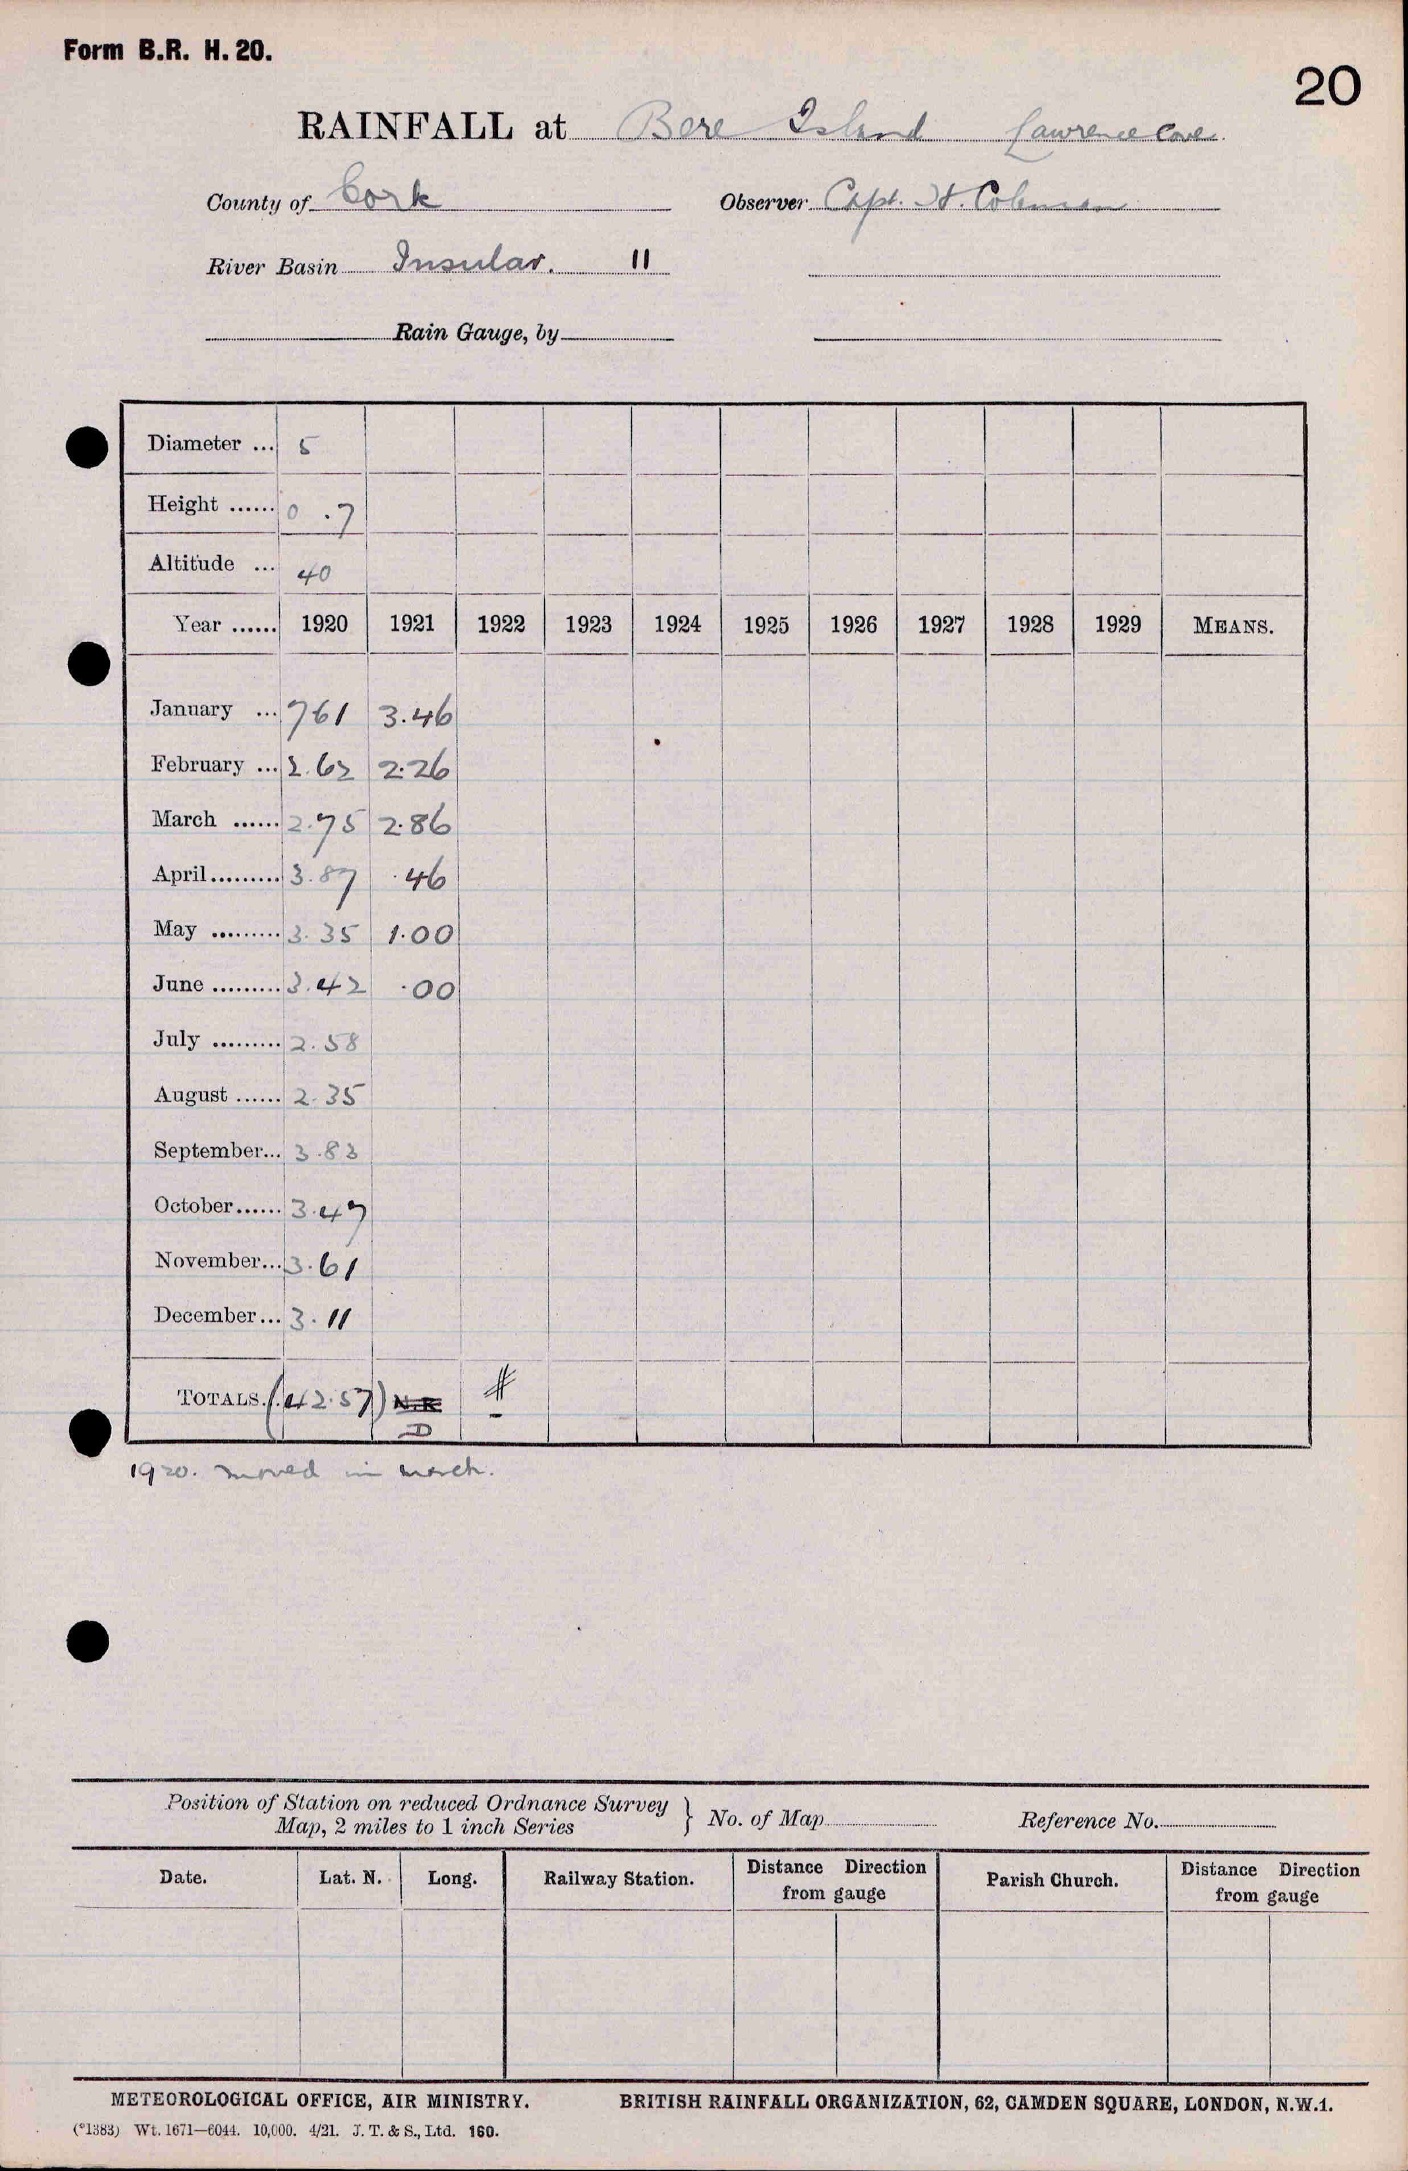 Form B.R. H. 20.
20
RAINFALL at Bere Island Lawrence Cove.
County of Cork Observer Capt. H. Coleman
River Basin Insular. 11
Rain Gauge, by
Diameter ... 5
Height ...... 0 .7
Altitude ... 40
Year ...... 1920 1921 1922 1923 1924 1925 1926 1927 1928 1929 MEANS.
January ... 761 3.46
February ... 2.62 2.26
March ...... 2.75 2.86
April ......... 3.87 .46
May ......... 3.35 1.00
June ......... 3.42 .00
July ......... 2.58
August ...... 2.35
September... 3.83
October...... 3.47
November... 3.61
December... 3.11
TOTALS. (42.57) N.R. #
D
1920. moved in march.
Position of Station on reduced Ordnance Survey
Map, 2 miles to 1 inch Series } No. of Map Reference No.
Date. Lat. N. Long. Railway Station. Distance Direction from gauge Parish Church. Distance Direction from gauge
METEOROLOGICAL OFFICE, AIR MINISTRY. BRITISH RAINFALL ORGANIZATION, 62, CAMDEN SQUARE, LONDON, N.W.1.
(*1383) Wt. 1671—6044. 10,000. 4/21. J. T. & S., Ltd. 160.